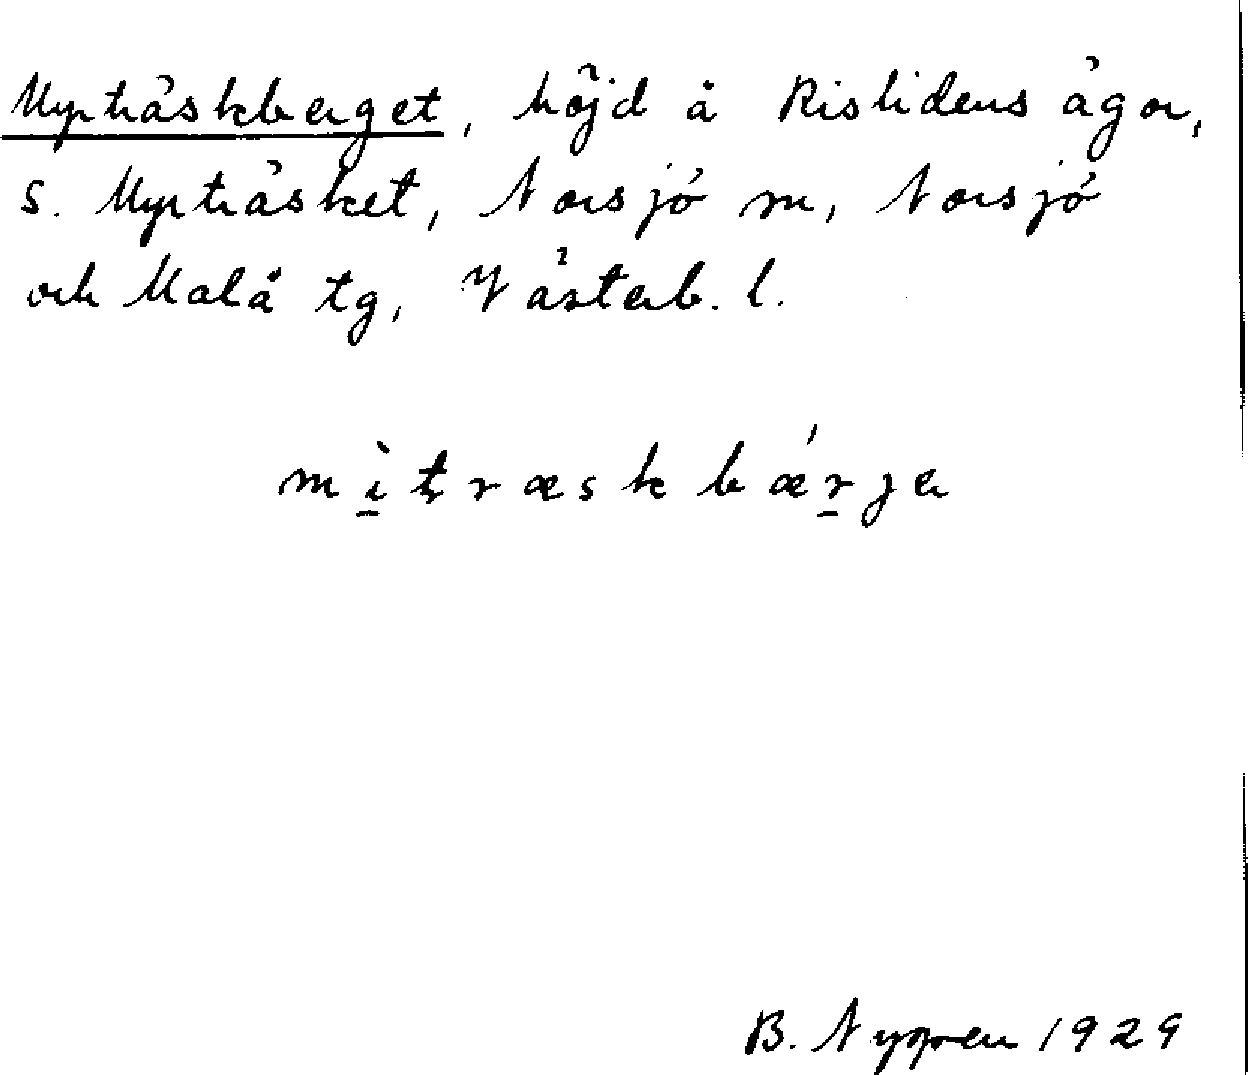 Myrträskberget, höjd å Rislidens ägor,
s. Myrträsket, Norsjö sn, Norsjö
och Malå tg, Västerb. l.
mì̠ţræskbǽr̠ja
B. Nygren 1929